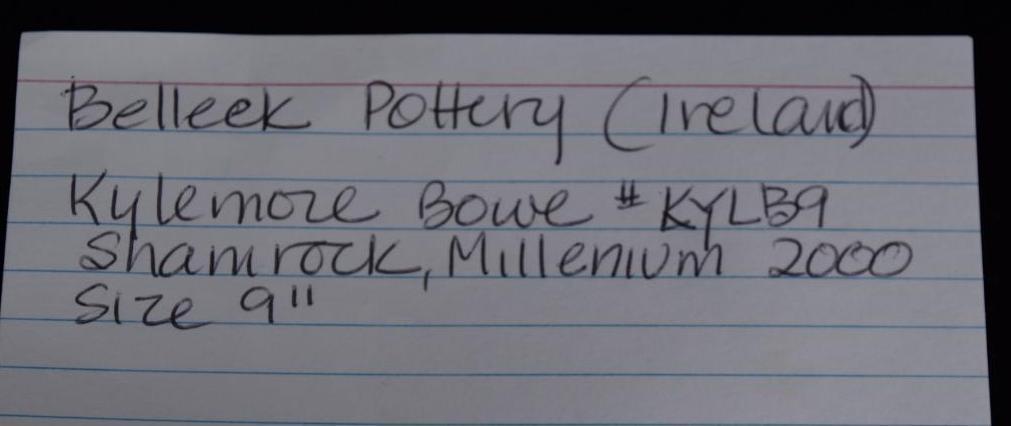 Belleek Pottery (Ireland)
Kylemore Bowe # KYLB9
Shamrock, Millenium 2000
Size 9"